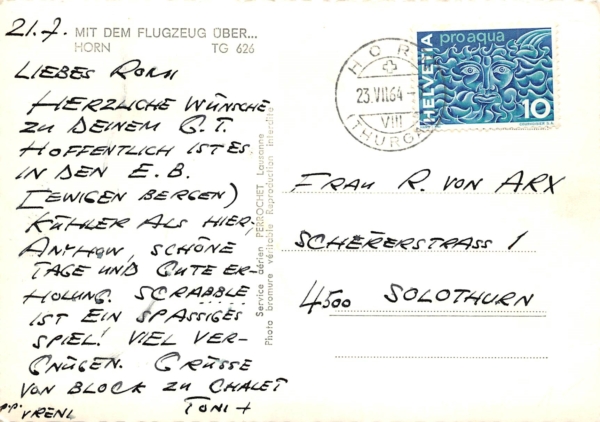 21.7.
MIT DEM FLUGZEUG ÜBER...
HORN TG 626
LIEBES ROMI
HERZLICHE WÜNSCHE
ZU DEINEM G.T.
HOFFENTLICH IST ES
IN DEN E.B.
(EWIGEN BERGEN)
KÜHLER ALS HIER.
ANYHOW, SCHÖNE
TAGE UND GUTE ER-
HOLUNG. SCRABBLE
IST EIN SPASSIGES
SPIEL! VIEL VER-
GNÜGEN. GRÜSSE
VON BLOCK ZU CHALET
TONI +
p.p. VRENI
Service aérien PERROCHET Lausanne
Photo bromure véritable Reproduction interdite
HORN
23.VII.64-
VIII
(THURGA
HELVETIA
pro aqua
10
FRAU R. VON ARX
SCHERERSTRASS 1
4500 SOLOTHURN